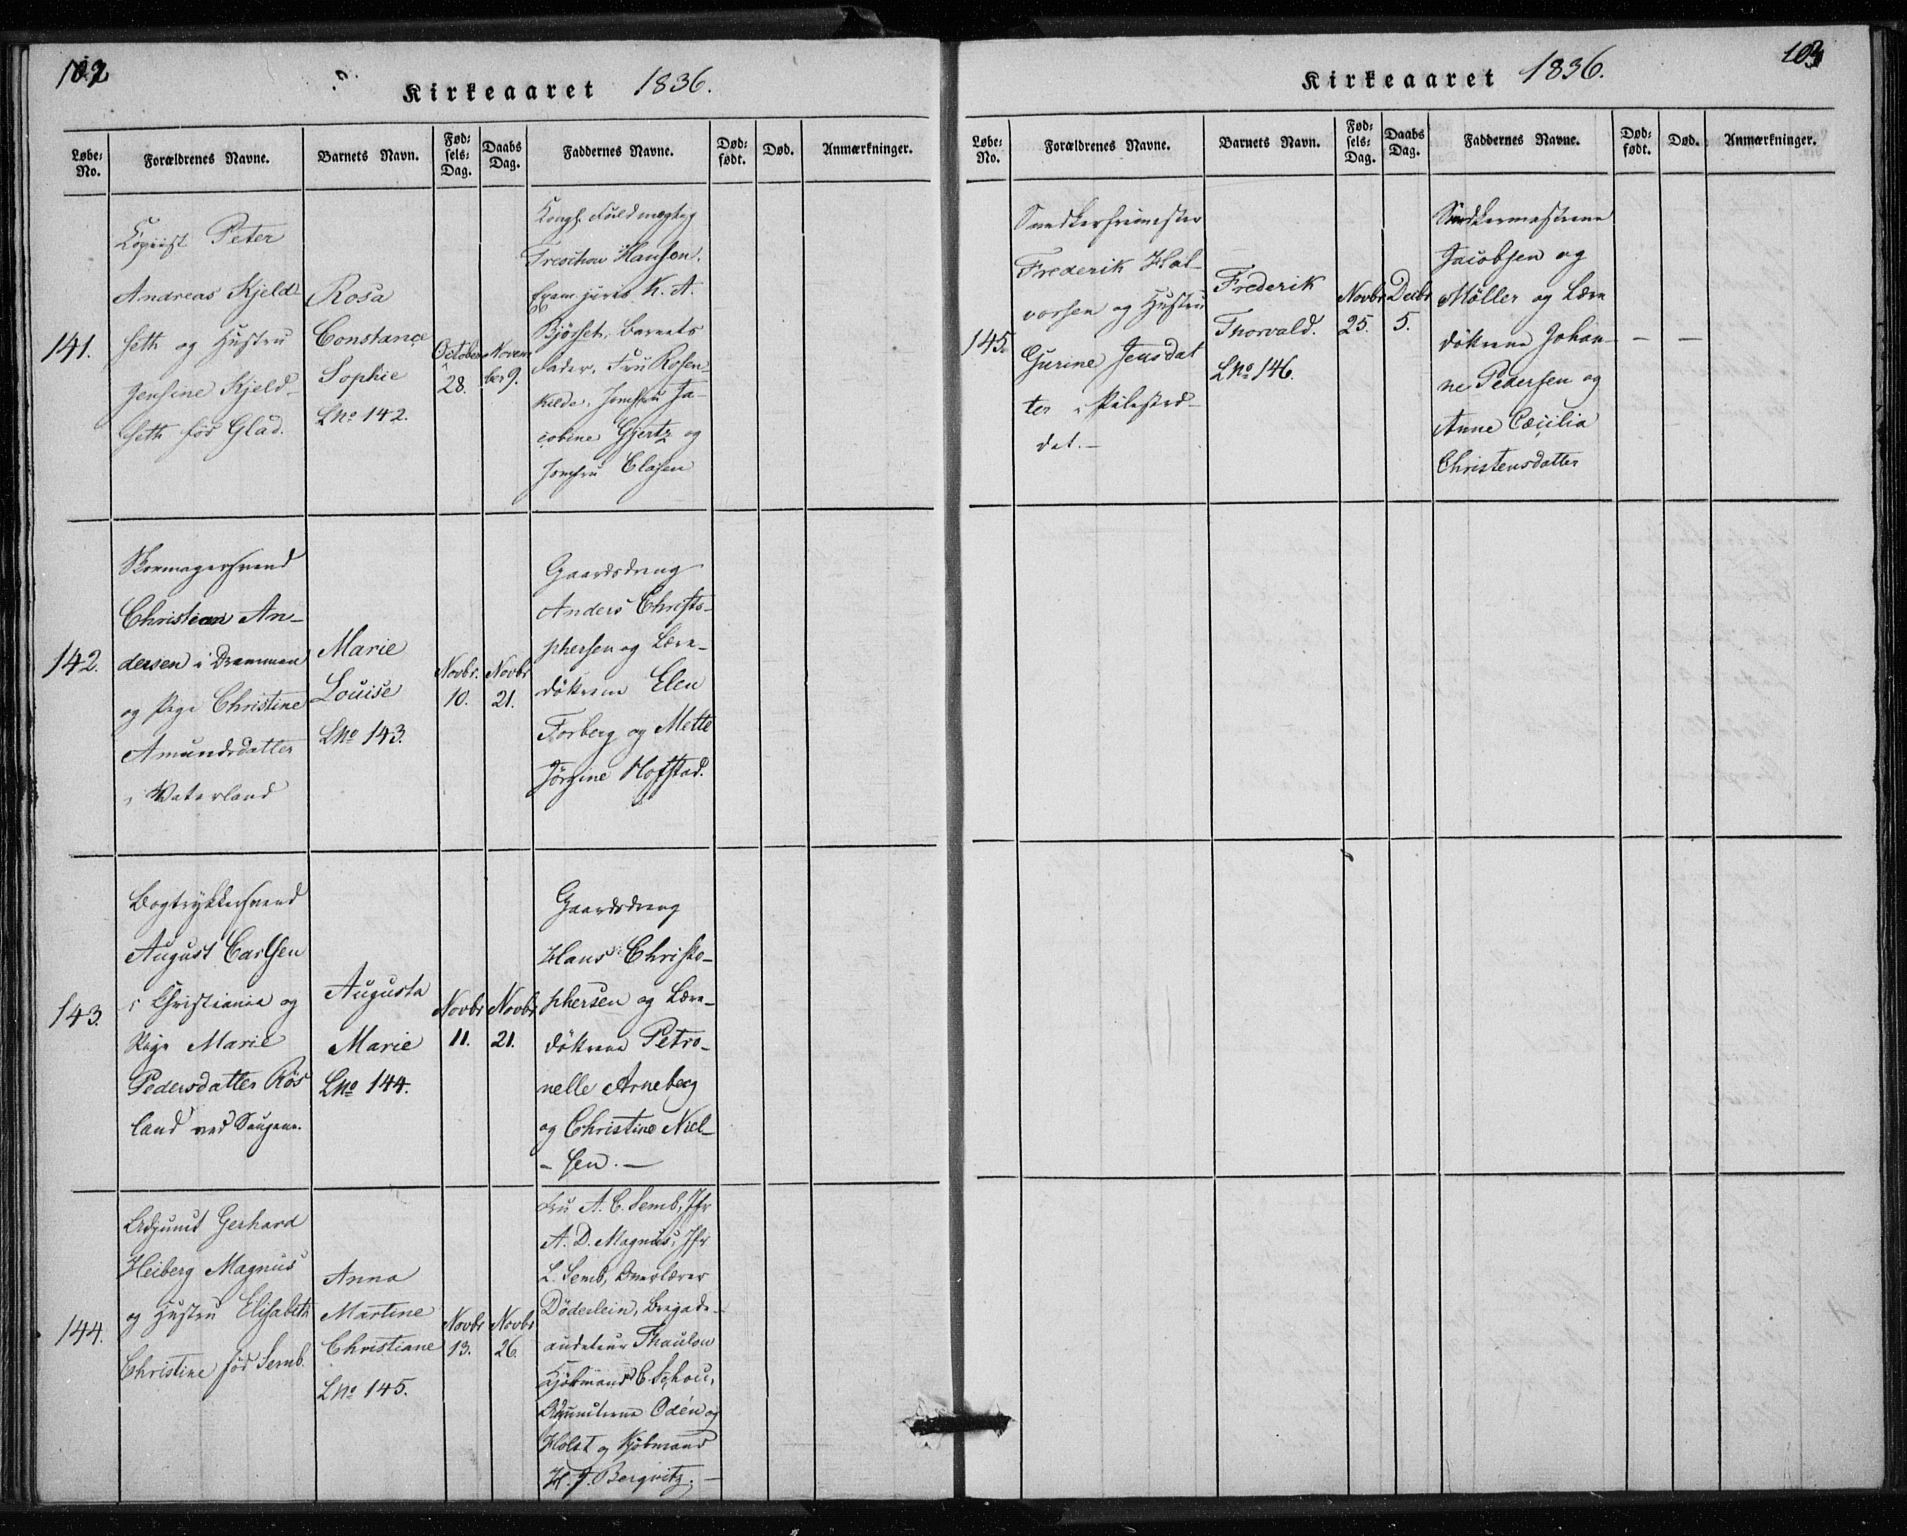 102
Kirkeaaret 1836.
Løbe-
No.
Forældrenes Navne.
Barnets Navn.
Fød-
sels-
Dag.
Daabs
Dag.
Faddernes Navne.
Død-
født.
Død.
Anmærkninger.
141.
Copiist Peter
Andreas Kjeld
seth og Hustru
Jensine Kjeld-
seth fød Glad.
Rosa
Constance
Sophie
LNo 142.
October
28.
Novem
ber 9.
Kongl. Fuldmægtig
Treschow Hansen,
Exam. juris K. A.
Bjørseth, Barnets
Fader, Fru Rosen-
kilde, Jomfru Ja-
cobine Gjertz og
Jomfru Clasen
142.
Skomagersvend
Christian An-
dersen i Drammen
og Pige Christine
Amundsdatter
i Waterland
Marie
Louise
LNo 143.
Novbr.
10.
Novbr
21.
Gaardsdreng
Anders Christo-
phersen og Lære-
døttrene Elen
Forberg og Mette
Jørgine Hofstad.
143.
Bogtrykkersvend
August Carlsen
i Christiania og
Pige Marie
Pedersdatter Røs
land ved Saugene.
Augusta
Marie
LNo 144.
Novbr
11.
Novbr
21.
Gaardsdreng
Hans Christo-
phersen og Lære-
døttrene Petro-
nelle Arneberg
og Christine Niel-
- sen. —
144.
Adjunct Gerhard
Heiberg Magnus
og Hustru Elisabeth
Christine fød Semb.
Anna
Martine
Christiane
LNo 145.
Novbr
13.
Novbr
26.
Fru A. C. Semb, Jfr
A. D. Magnus, Jfr
L. Semb, Overlærer
Döderlein, Brigade-
auditeur Thaulow
Kjøbmand C Schou,
Adjuncterne Odén og
Holst og Kjøbmand
H. J. Bergwitz. —
103
Kirkeaaret 1836.
Løbe-
No.
Forældrenes Navne.
Barnets Navn.
Fød-
sels-
Dag.
Daabs
Dag.
Faddernes Navne.
Død-
født.
Død.
Anmærkninger.
145.
Snedkerfrimester
Frederik Hal-
vorsen og Hustru
Gurine Jensdat
ter i Pilestræ-
det. —
Frederik
Thorvald.
LNo 146.
Novbr
25.
Decbr
5.
Snedkermestrene
Jacobsen og
Møller og Lære
døttrene Johan-
ne Pedersen og
Anne Cæcilia
Christensdatter
—
—